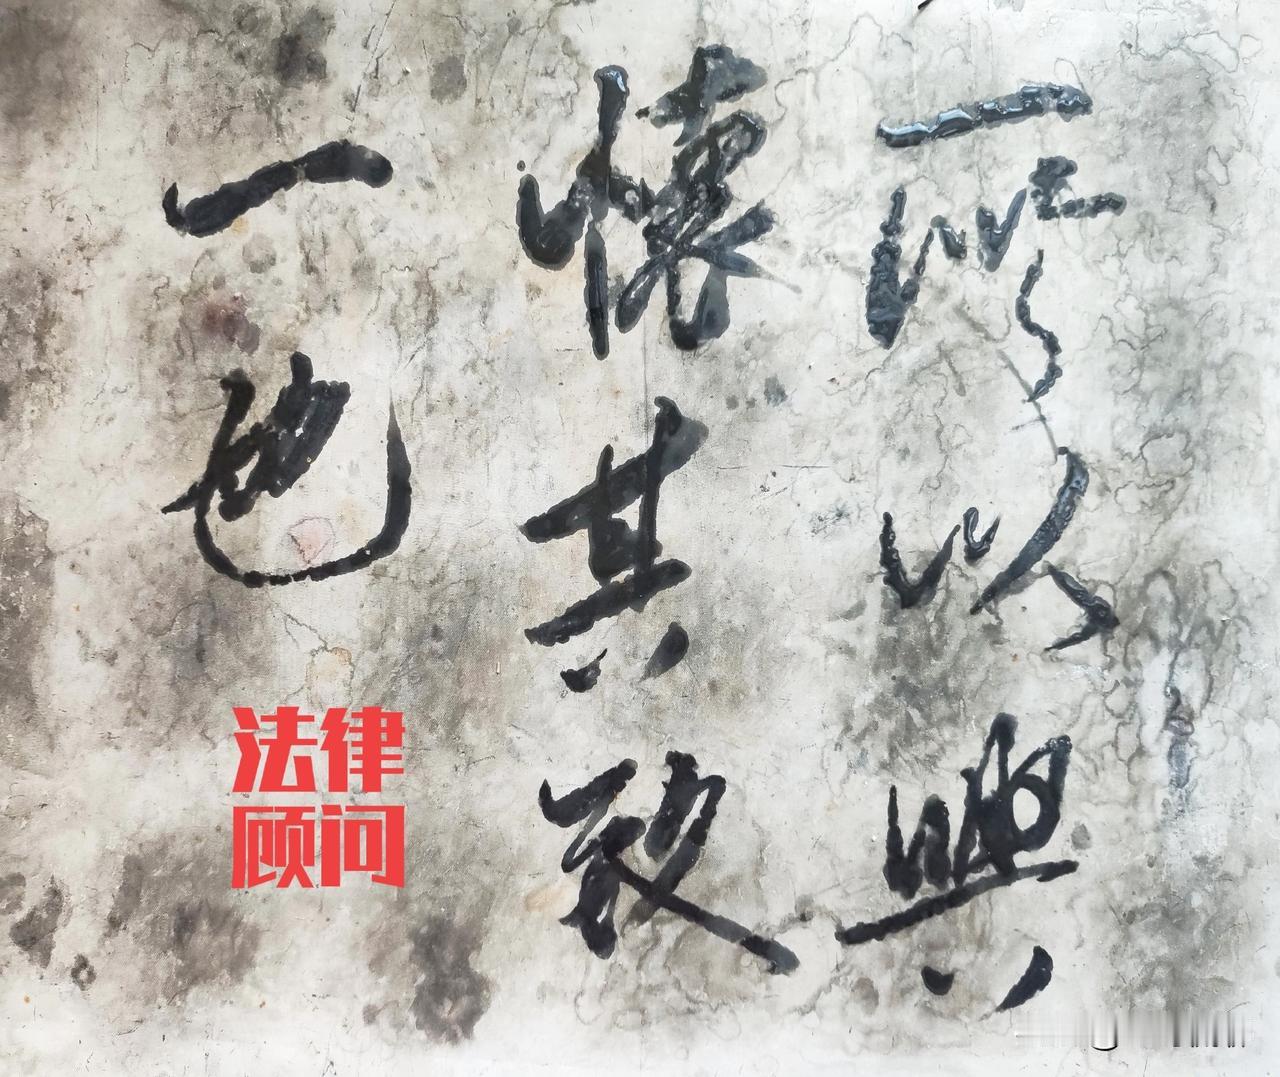 所以興
懷其致
一也
法律
顾问